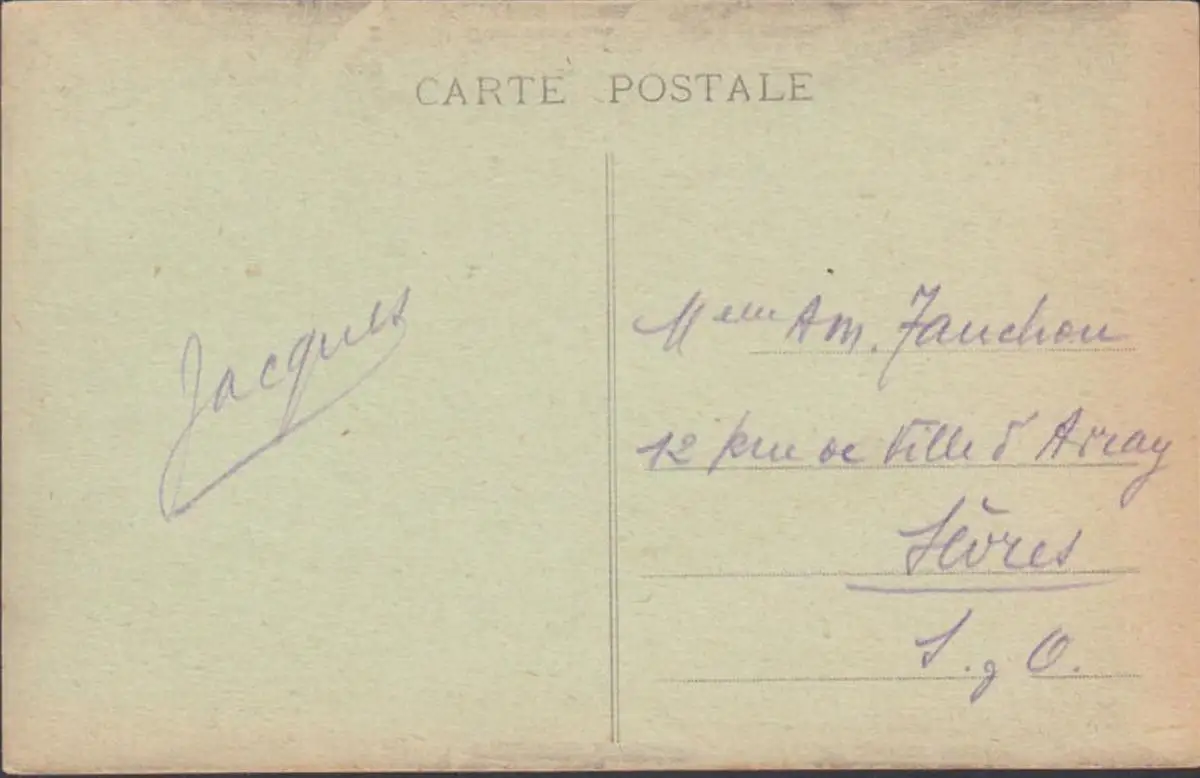 CARTE POSTALE
Jacques
Melle Am. Fauchon
12 rue de Ville d'Avray
Sèvres
S. & O.